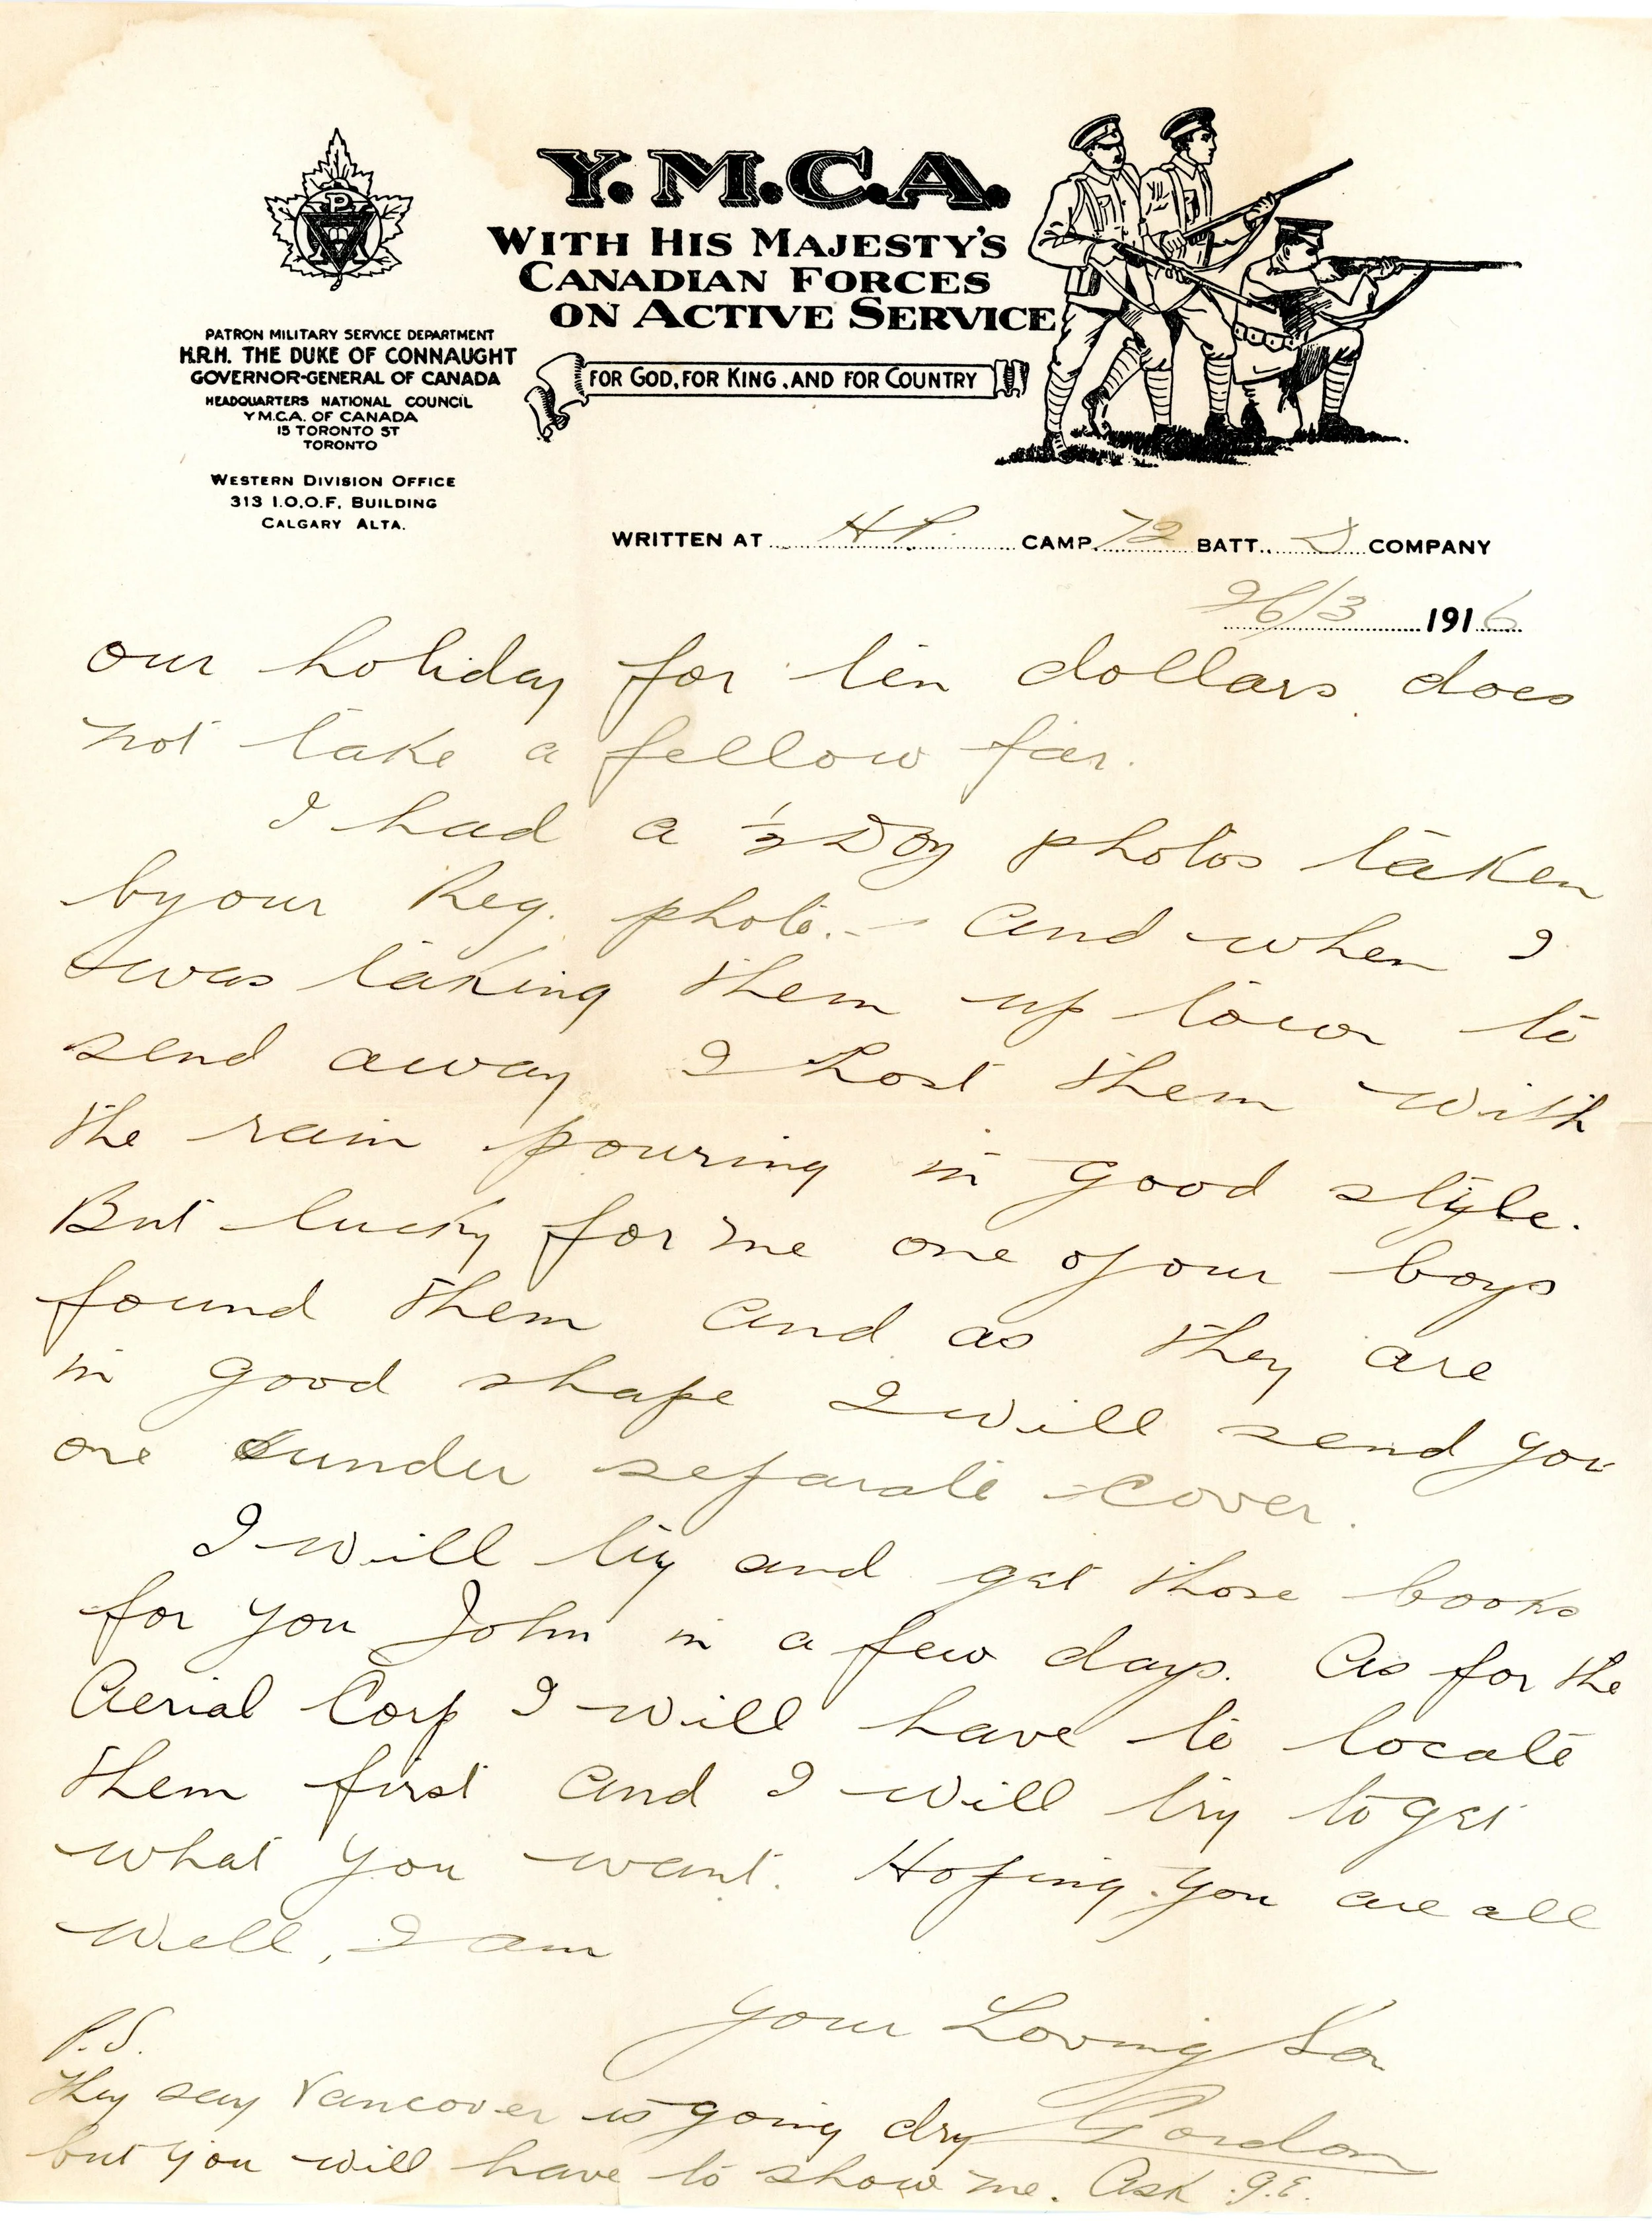 Y.M.C.A.
WITH HIS MAJESTY'S
CANADIAN FORCES
ON ACTIVE SERVICE
FOR GOD, FOR KING, AND FOR COUNTRY
PATRON MILITARY SERVICE DEPARTMENT
H.R.H. THE DUKE OF CONNAUGHT
GOVERNOR-GENERAL OF CANADA
HEADQUARTERS NATIONAL COUNCIL
Y.M.C.A. OF CANADA
15 TORONTO ST
TORONTO
WESTERN DIVISION OFFICE
313 I.O.O.F. BUILDING
CALGARY ALTA.
WRITTEN AT H.P. CAMP 72 BATT. D COMPANY
26/3 1916
our holiday for ten dollars does
not take a fellow far.
I had a ½ Doz photos taken
by our Reg. photo. - and when I
was taking them up town to
send away I lost them with
the rain pouring in good style.
But lucky for me one of our boys
found them and as they are
in good shape I will send you
one under separate cover.
I will try and get those books
for you John in a few days. As for the
Aerial Corp I will have to locate
them first and I will try to get
what you want. Hoping you are all
well, I am
Your Loving Son
Gordon
P.S.
They say Vancover is going dry
but you will have to show me. Ask G.E.